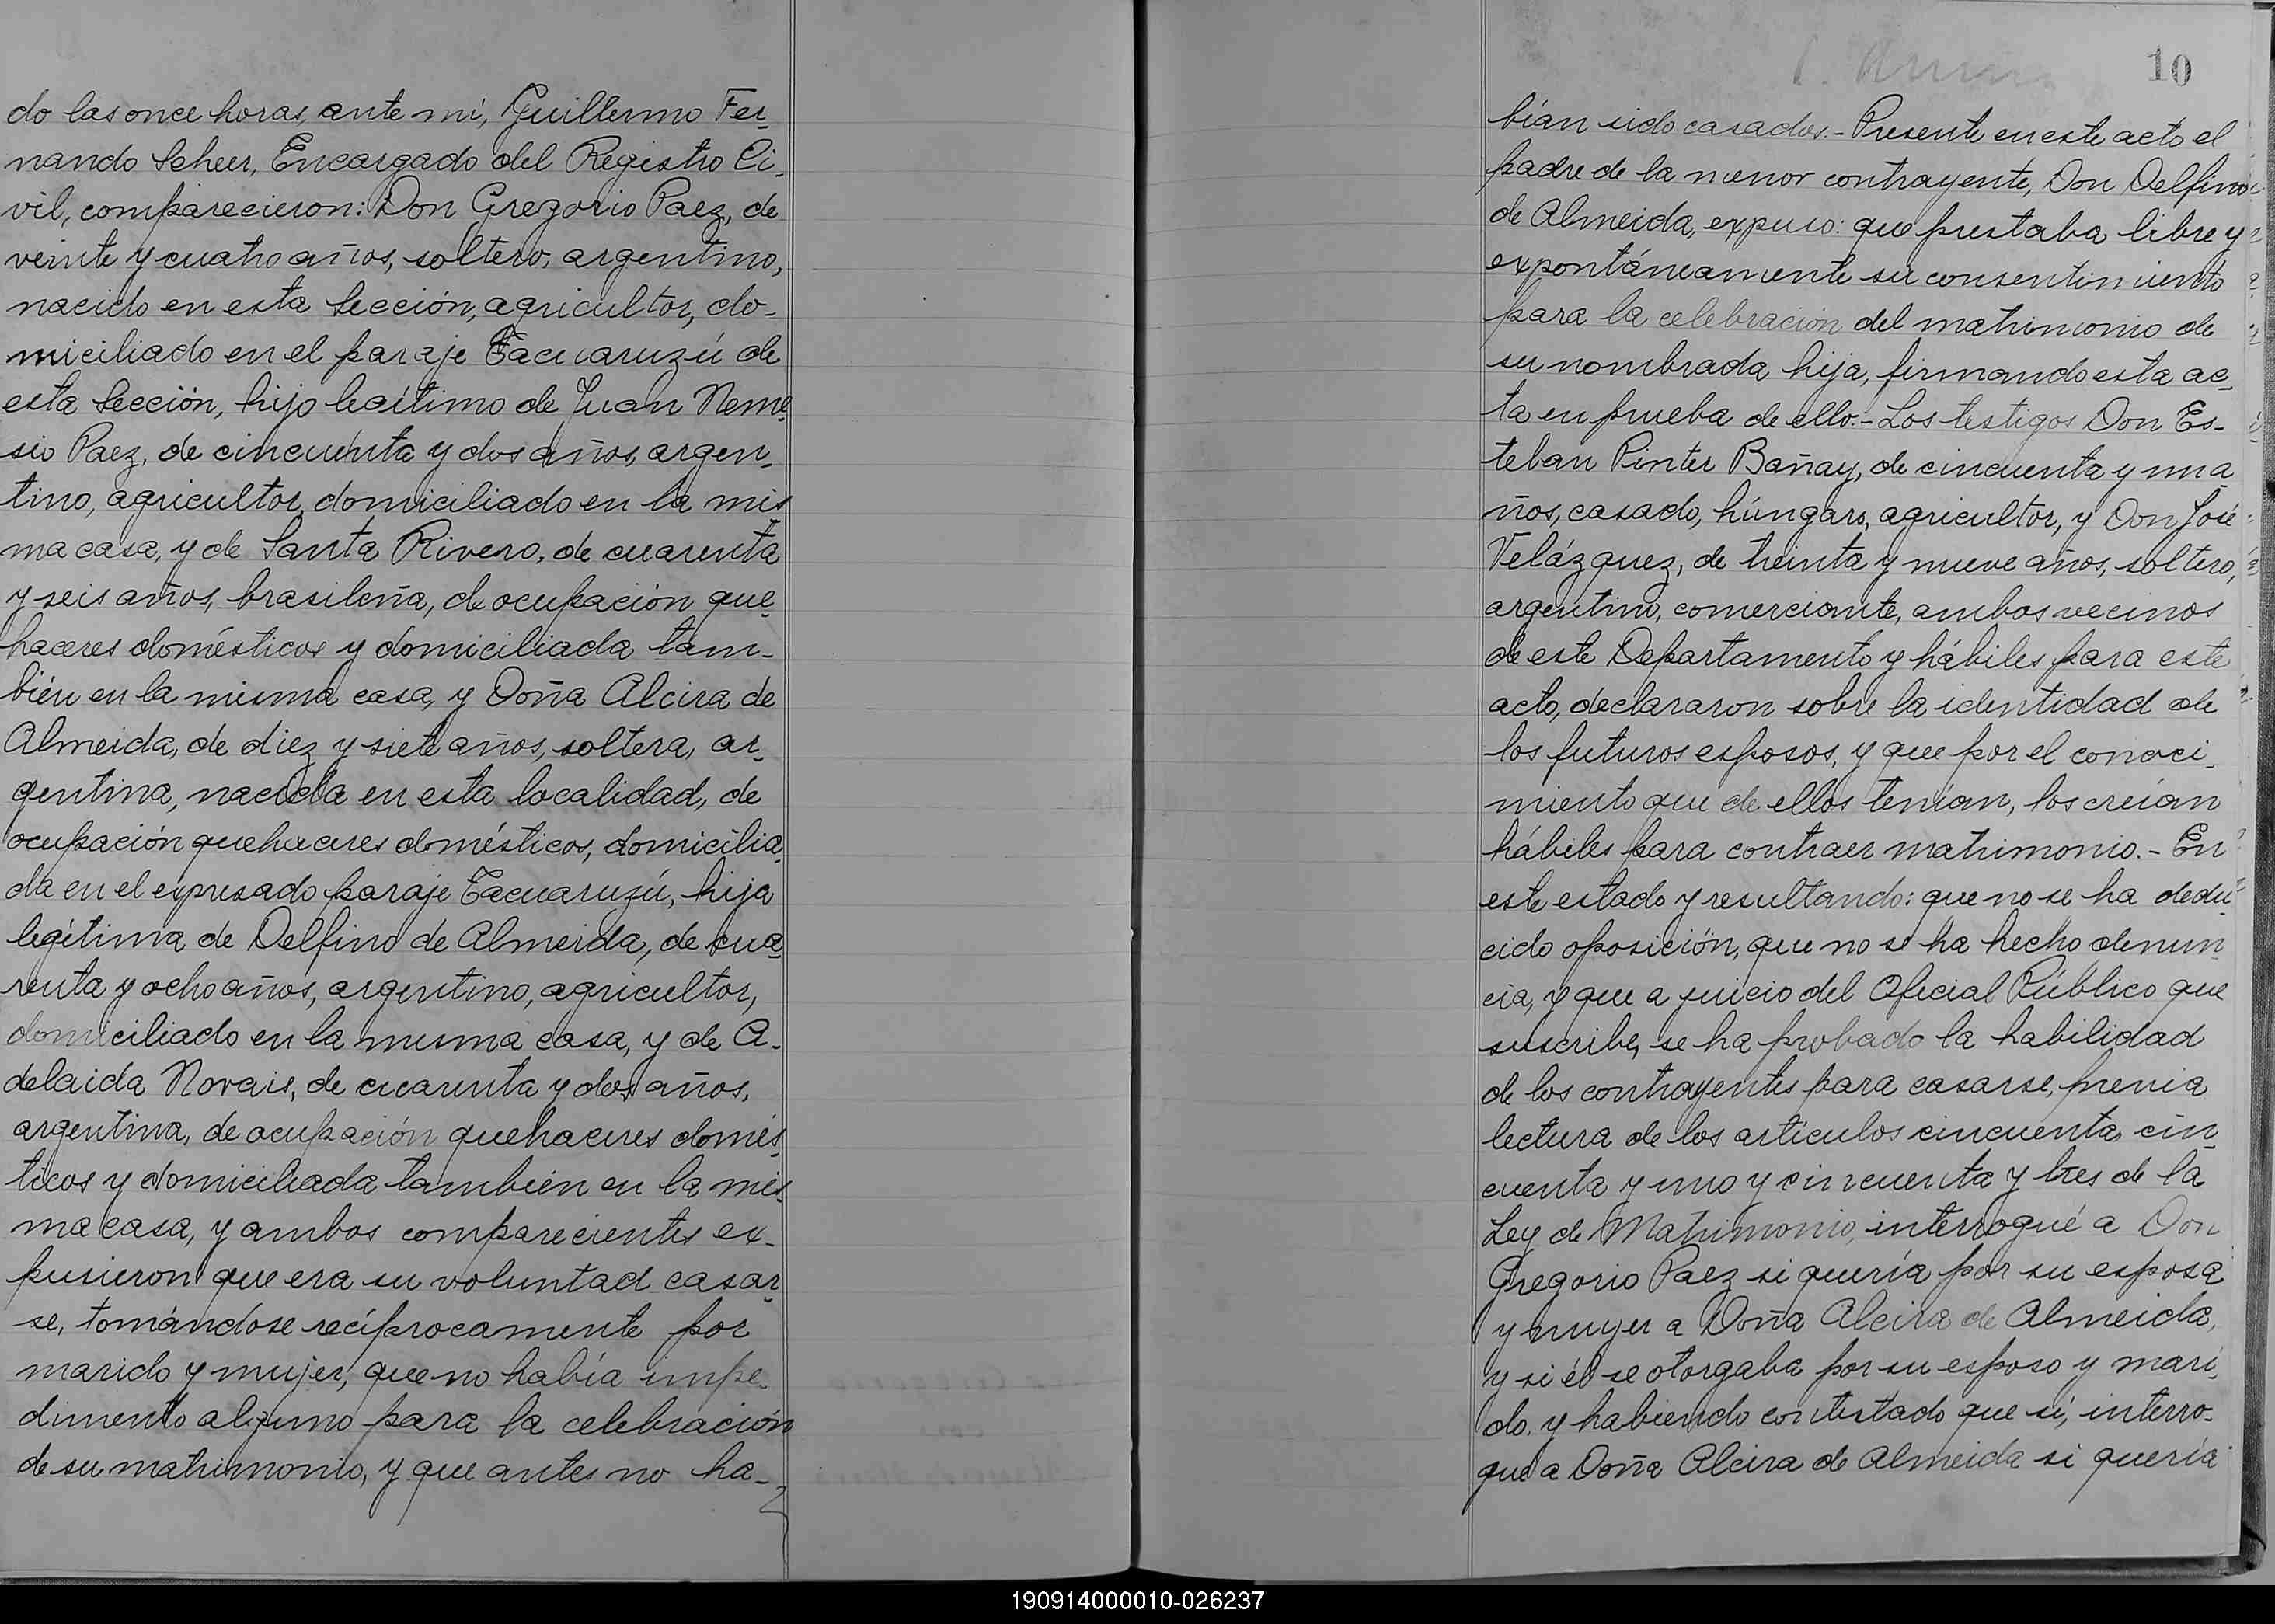 do las once horas, ante mí, Guillermo Fer-
nando Scheer, Encargado del Registro Ci-
vil, comparecieron: Don Gregorio Paez, de
veinte y cuatro años, soltero, argentino,
nacido en esta Sección, agricultor, do-
miciliado en el paraje Tacuaruzú de
esta Sección, hijo legítimo de Juan Neme-
sio Paez, de cincuenta y dos años, argen-
tino, agricultor, domiciliado en la mis
ma casa, y de Santa Rivero, de cuarenta
y seis años, brasileña, de ocupación que-
haceres domésticos y domiciliada tam-
bién en la misma casa, y Doña Alcira de
Almeida, de diez y siete años, soltera, ar-
gentina, nacida en esta localidad, de
ocupación quehaceres domésticos, domicilia-
da en el expresado paraje Tacuaruzú, hija
legítima de Delfino de Almeida, de cua-
renta y ocho años, argentino, agricultor,
domiciliado en la misma casa, y de A-
delaida Novais, de cuarenta y dos años,
argentina, de ocupación quehaceres domés-
ticos y domiciliada también en la mis-
ma casa, y ambos comparecientes ex-
pusieron que era su voluntad casar-
se, tomándose recíprocamente por
marido y mujer, que no había impe-
dimento alguno para la celebración
de su matrimonio, y que antes no ha-
10
bían sido casados.- Presente en este acto el
padre de la menor contrayente, Don Delfino
de Almeida, expuso: que prestaba libre y
expontáneamente su consentimiento
para la celebración del matrimonio de
su nombrada hija, firmando esta ac-
ta en prueba de ello.- Los testigos Don Es-
teban Pinter Bañay, de cincuenta y un a
ños, casado, húngaro, agricultor, y Don José
Velázquez, de treinta y nueve años, soltero,
argentino, comerciante, ambos vecinos
de este Departamento y hábiles para este
acto, declararon sobre la identidad de
los futuros esposos, y que por el conoci-
miento que de ellos tenían, los creían
hábiles para contraer matrimonio.- En
este estado y resultando: que no se ha dedu-
cido oposición, que no se ha hecho denun-
cia, y que a juicio del Oficial Público que
suscribe, se ha probado la habilidad
de los contrayentes para casarse, previa
lectura de los artículos cincuenta, cin-
cuenta y uno y cincuenta y tres de la
Ley de Matrimonio, interrogué a Don
Gregorio Paez si quería por su esposa
y mujer a Doña Alcira de Almeida,
y si él se otorgaba por su esposo y mari-
do, y habiendo contestado que sí, interro-
gué a Doña Alcira de Almeida si quería
190914000010-026237